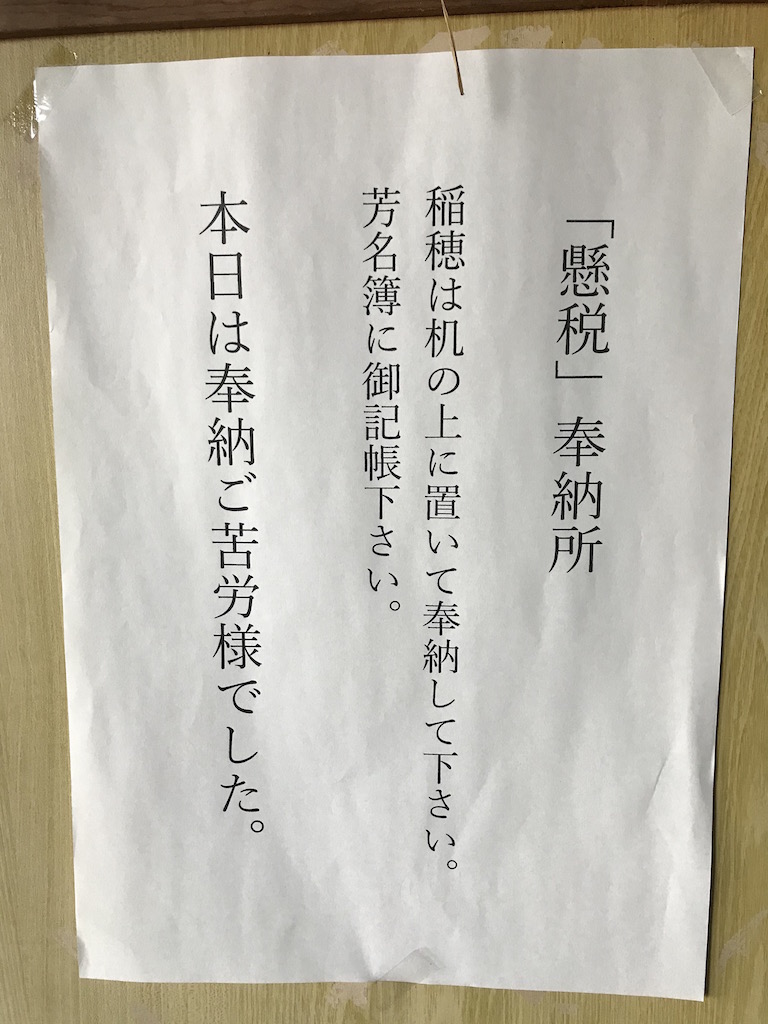 「懸税」奉納所
稲穂は机の上に置いて奉納して下さい。
芳名簿に御記帳下さい。
本日は奉納ご苦労様でした。